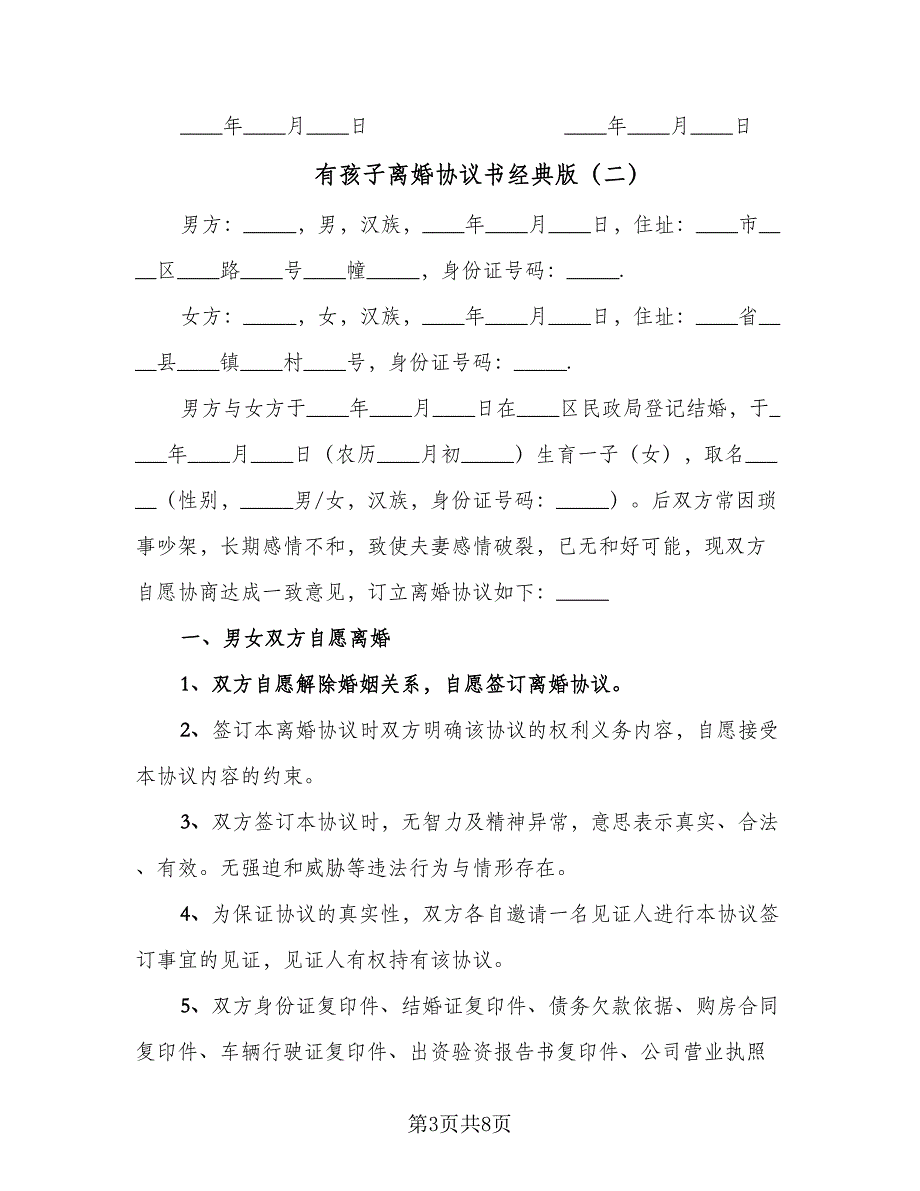 ____年____月____日 ____年____月____日
有孩子离婚协议书经典版（二）
男方：_____，男，汉族，____年____月____日，住址：____市__
__区____路____号____幢_____，身份证号码：_____.
女方：_____，女，汉族，____年____月____日，住址：____省__
__县____镇____村____号，身份证号码：_____.
男方与女方于____年____月____日在____区民政局登记结婚，于_
___年____月____日（农历____月初_____）生育一子（女），取名___
__（性别，_____男/女，汉族，身份证号码：_____）。后双方常因琐
事吵架，长期感情不和，致使夫妻感情破裂，已无和好可能，现双方
自愿协商达成一致意见，订立离婚协议如下：_____
一、男女双方自愿离婚
1、双方自愿解除婚姻关系，自愿签订离婚协议。
2、签订本离婚协议时双方明确该协议的权利义务内容，自愿接受
本协议内容的约束。
3、双方签订本协议时，无智力及精神异常，意思表示真实、合法
、有效。无强迫和威胁等违法行为与情形存在。
4、为保证协议的真实性，双方各自邀请一名见证人进行本协议签
订事宜的见证，见证人有权持有该协议。
5、双方身份证复印件、结婚证复印件、债务欠款依据、购房合同
复印件、车辆行驶证复印件、出资验资报告书复印件、公司营业执照
第3页共8页